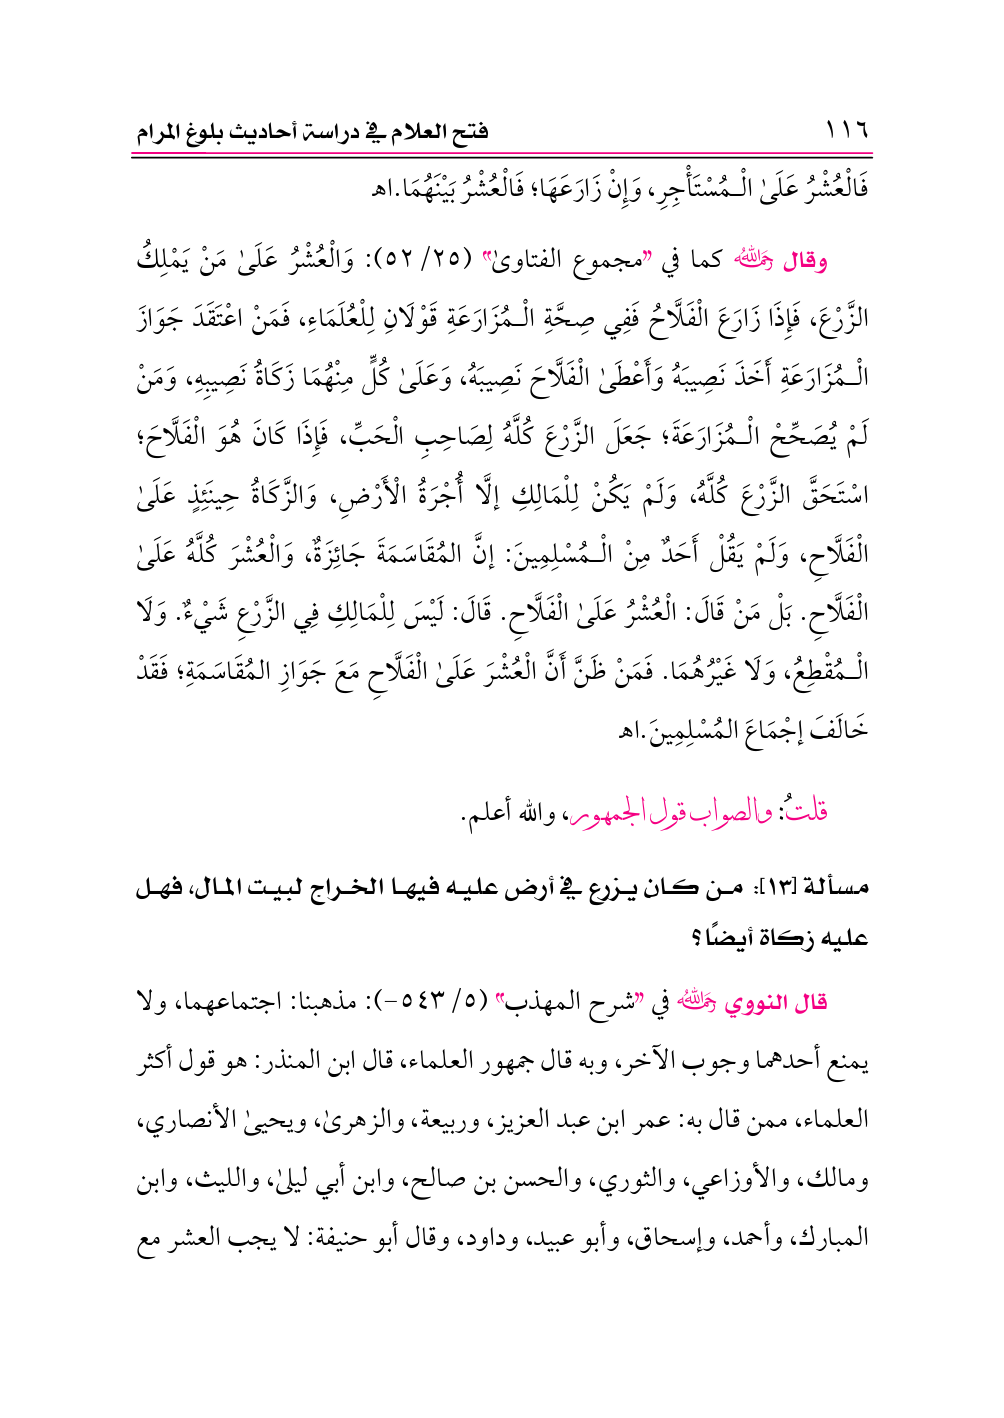 ١١٦
فتح العلام في دراسة أحاديث بلوغ المرام
فَالْعُشْرُ عَلَىٰ الْـمُسْتَأْجِرِ، وَإِنْ زَارَعَهَا؛ فَالْعُشْرُ بَيْنَهُمَا.اﻫ
وقال رحمه الله كما في "مجموع الفتاوىٰ" (٢٥/ ٥٢): وَالْعُشْرُ عَلَىٰ مَنْ يَمْلِكُ
الزَّرْعَ، فَإِذَا زَارَعَ الْفَلَّاحُ فَفِي صِحَّةِ الْـمُزَارَعَةِ قَوْلَانِ لِلْعُلَمَاءِ، فَمَنْ اعْتَقَدَ جَوَازَ
الْـمُزَارَعَةِ أَخَذَ نَصِيبَهُ وَأَعْطَىٰ الْفَلَّاحَ نَصِيبَهُ، وَعَلَىٰ كُلٍّ مِنْهُمَا زَكَاةُ نَصِيبِهِ، وَمَنْ
لَمْ يُصَحِّحْ الْـمُزَارَعَةَ؛ جَعَلَ الزَّرْعَ كُلَّهُ لِصَاحِبِ الْحَبِّ، فَإِذَا كَانَ هُوَ الْفَلَّاحَ؛
اسْتَحَقَّ الزَّرْعَ كُلَّهُ، وَلَمْ يَكُنْ لِلْمَالِكِ إلَّا أُجْرَةُ الْأَرْضِ، وَالزَّكَاةُ حِينَئِذٍ عَلَىٰ
الْفَلَّاحِ، وَلَمْ يَقُلْ أَحَدٌ مِنْ الْـمُسْلِمِينَ: إنَّ المُقَاسَمَةَ جَائِزَةٌ، وَالْعُشْرَ كُلَّهُ عَلَىٰ
الْفَلَّاحِ. بَلْ مَنْ قَالَ: الْعُشْرُ عَلَىٰ الْفَلَّاحِ. قَالَ: لَيْسَ لِلْمَالِكِ فِي الزَّرْعِ شَيْءٌ. وَلَا
الْـمُقْطِعُ، وَلَا غَيْرُهُمَا. فَمَنْ ظَنَّ أَنَّ الْعُشْرَ عَلَىٰ الْفَلَّاحِ مَعَ جَوَازِ المُقَاسَمَةِ؛ فَقَدْ
خَالَفَ إجْمَاعَ المُسْلِمِينَ.اﻫ
قلتُ: والصواب قول الجمهور، والله أعلم.
مسألة [١٣]: مـن كـان يـزرع في أرض عليـه فيهـا الخـراج لبيـت المـال، فهـل
عليه زكاة أيضًا؟
قال النووي رحمه الله في "شرح المهذب" (٥/ ٥٤٣-): مذهبنا: اجتماعهما، ولا
يمنع أحدهما وجوب الآخر، وبه قال جمهور العلماء، قال ابن المنذر: هو قول أكثر
العلماء، ممن قال به: عمر ابن عبد العزيز، وربيعة، والزهرىٰ، ويحيىٰ الأنصاري،
ومالك، والأوزاعي، والثوري، والحسن بن صالح، وابن أبي ليلىٰ، والليث، وابن
المبارك، وأحمد، وإسحاق، وأبو عبيد، وداود، وقال أبو حنيفة: لا يجب العشر مع